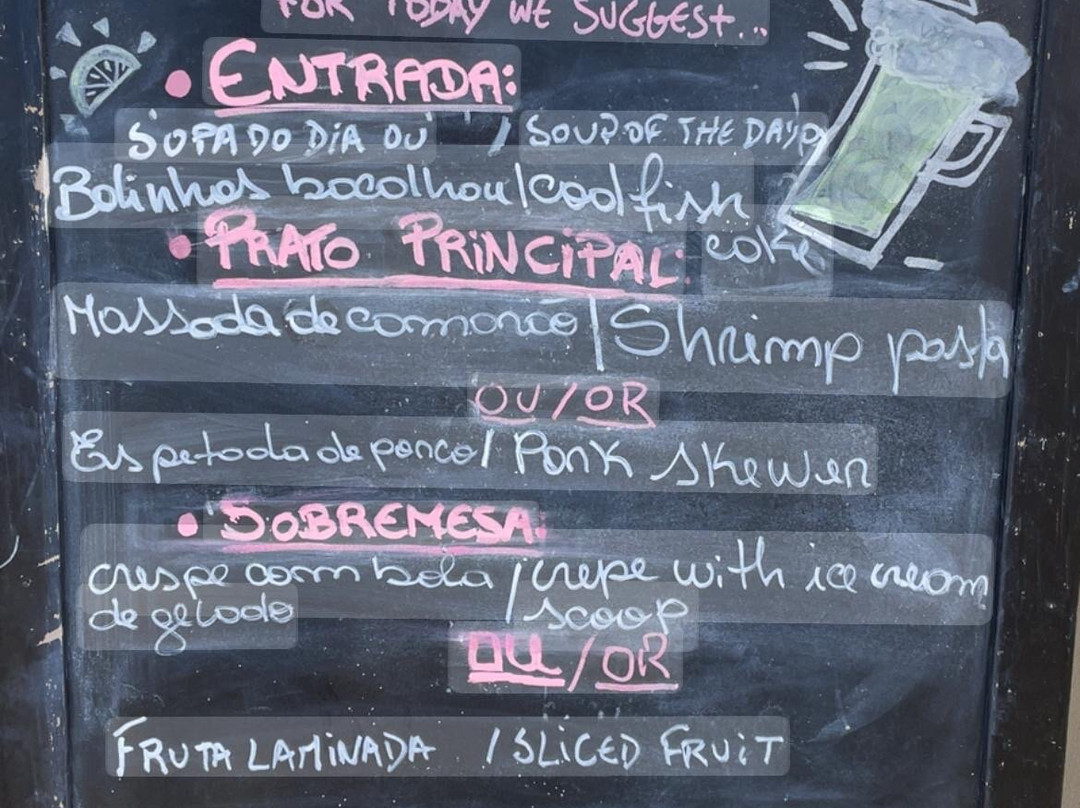 FOR TODAY WE SUGGEST...
• ENTRADA:
SOPA DO DIA OU / SOUP OF THE DAY
Bolinhos bacalhau/codfish
cake
• PRATO PRINCIPAL:
Massada de camarão / Shrimp pasta
OU/OR
Espetada de porco / Pork skewer
• SOBREMESA:
crespe com bola / crepe with ice cream
de gelado scoop
OU/OR
FRUTA LAMINADA / SLICED FRUIT